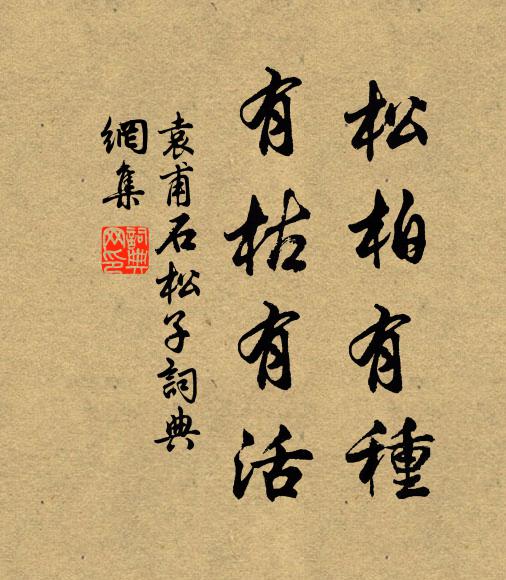 松柏有種
有枯有活
袁甫石松子詞典
網集
詞典網印